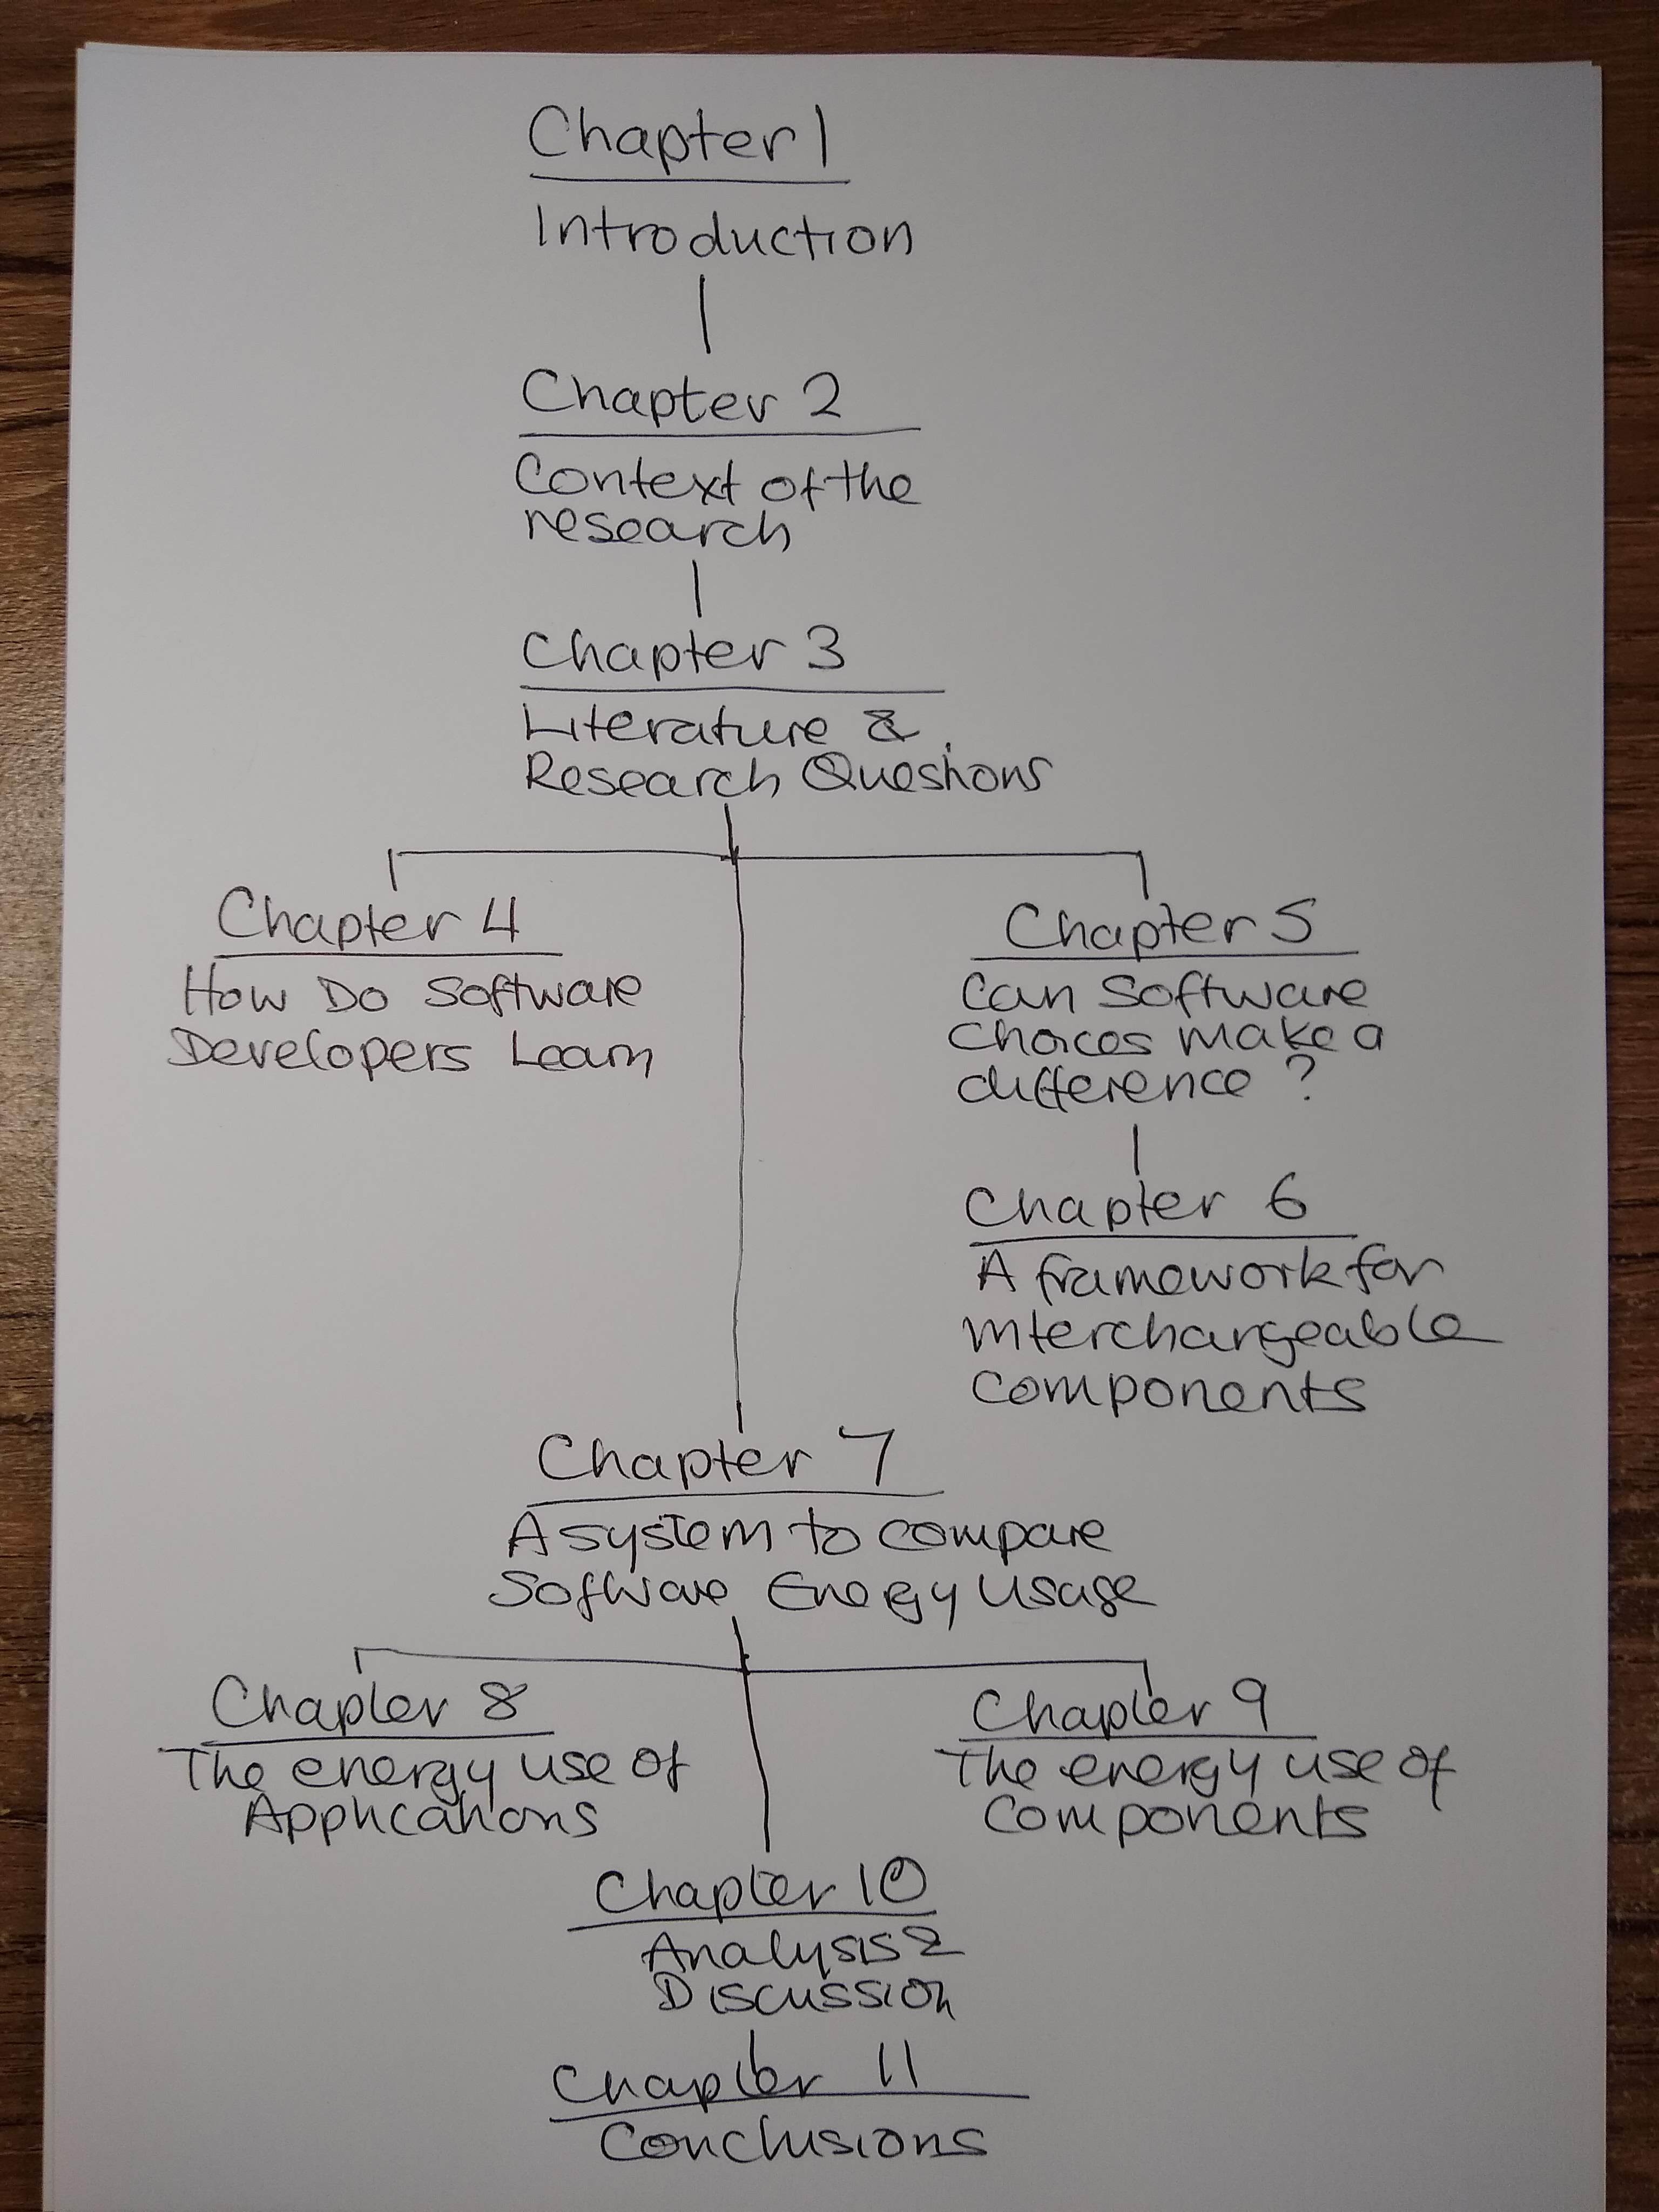 Chapter 1
Introduction
Chapter 2
Context of the
research
Chapter 3
Literature &
Research Questions
Chapter 4
How Do Software
Developers Learn
Chapter 5
Can Software
Choices make a
difference ?
Chapter 6
A framework for
interchangeable
components
Chapter 7
A system to compare
Software Energy Usage
Chapter 8
The energy use of
Applications
Chapter 9
The energy use of
Components
Chapter 10
Analysis &
Discussion
Chapter 11
Conclusions